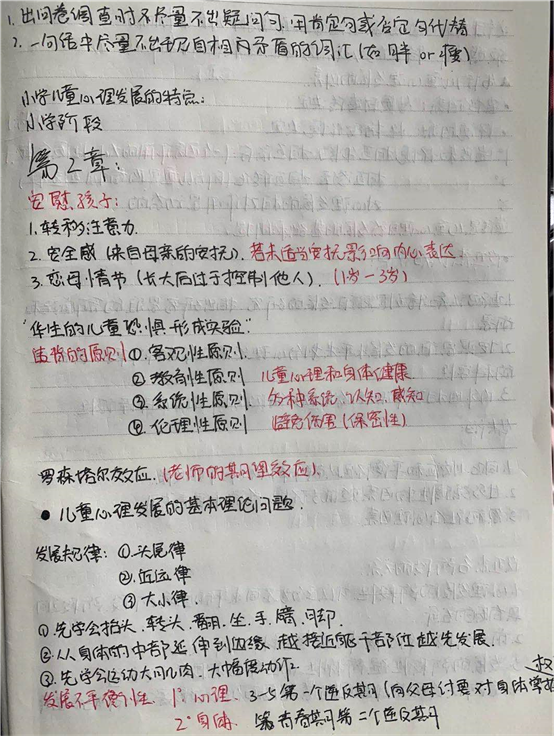 1. 出问卷调查时不尽量不出疑问句, 用肯定句或否定句代替
2. 一句话中尽量不出现自相矛盾的词汇 (如 胖 or 瘦)
小学儿童心理发展的特点:
小学阶段
第2章:
安慰孩子:
1. 转移注意力.
2. 安全感 (来自母亲的安抚). 若未适当安抚影响内心表达.
3. 恋母情节 (长大后过于控制他人). (1岁-3岁)
"华生的儿童恐惧形成实验."
违背的原则 ① 客观性原则.
② 教育性原则 儿童心理和身体健康
③ 系统性原则. 分种系统, 认知, 感知
④ 伦理性原则 避免伤害 (保密性)
罗森塔尔效应. (老师的期望效应)
● 儿童心理发展的基本理论问题.
发展规律: ①头尾律
②近远律
③大小律.
①. 先学会抬头. 转头. 翻. 坐. 手. 臂. 脚.
②. 从身体的中部延伸到边缘, 越接近躯干部位越先发展.
③. 先学会运动大肌肉. 大幅度动作.
发展不平衡性 1° 心理. 3-5 第一个逆反期 (向父母付要对自体掌控权
2° 身体. 青春期第二个逆反期